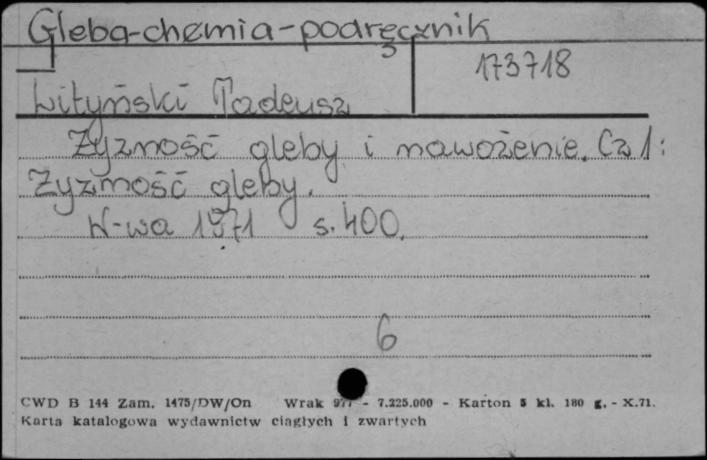 Gleba-chemia-podręcznik
173718
Lityński Tadeusz
Żyzność gleby i nawożenie. Cz 1:
Żyzność gleby.
W-wa 1971 s. 400.
6
CWD B 144 Zam. 1475/DW/On Wrak - 7.225.000 - Karton 5 kl. 180 g. - X.71.
Karta katalogowa wydawnictw ciągłych i zwartych